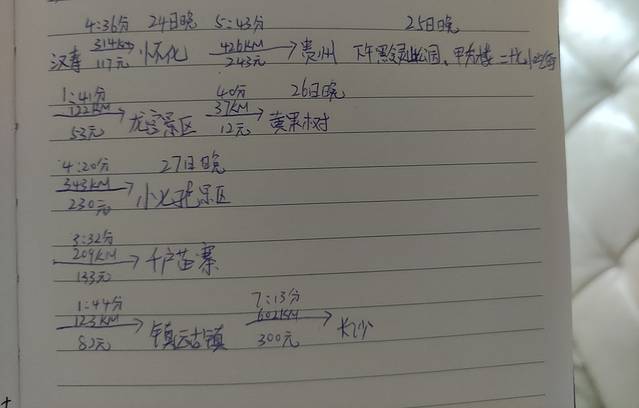 4:36分 24日晚 5:43分 25日晚
汉寿 314KM 117元 怀化 426KM 243元 贵州 下午黔灵山公园、甲秀楼 二七小吃街
1:41分 40分 26日晚
122KM 53元 龙宫景区 37KM 12元 黄果树
4:20分 27日晚
343KM 230元 小七孔景区
3:32分
209KM 133元 千户苗寨
1:44分 7:13分
123KM 元 镇远古镇 602KM 300元 长沙